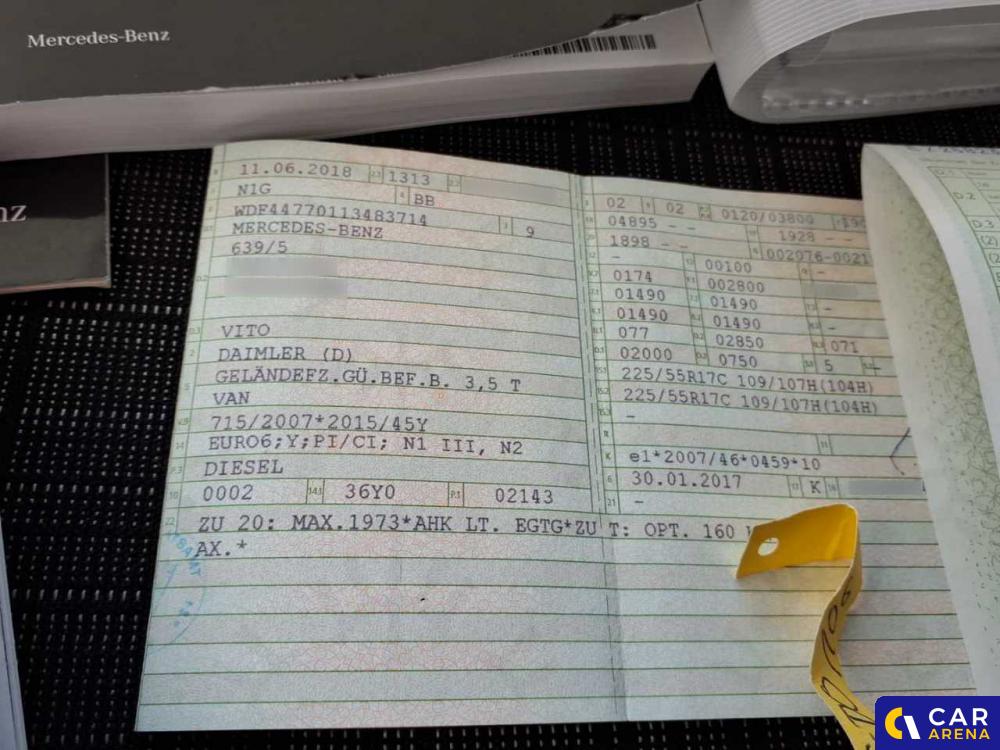 Mercedes-Benz
nz
11.06.2018 1313
N1G BB
WDF44770113483714 9
MERCEDES-BENZ
639/5
VITO
DAIMLER (D)
GELÄNDEFZ.GÜ.BEF.B. 3,5 T
VAN
715/2007*2015/45Y
EURO6;Y;PI/CI; N1 III, N2
DIESEL
0002 36Y0 02143
ZU 20: MAX.1973*AHK LT. EGTG*ZU T: OPT. 160
AX.*
02 02 0120/03800
04895 - - 1928 - -
1898 - - 002076-0021
- 00100 -
0174 002800
01490 01490 -
01490 01490 -
077 02850 071
02000 0750 5 -
225/55R17C 109/107H(104H)
225/55R17C 109/107H(104H)
-
K e1*2007/46*0459*10
6 30.01.2017 K
21 -
D.2
D.3
(2)
CAR
ARENA